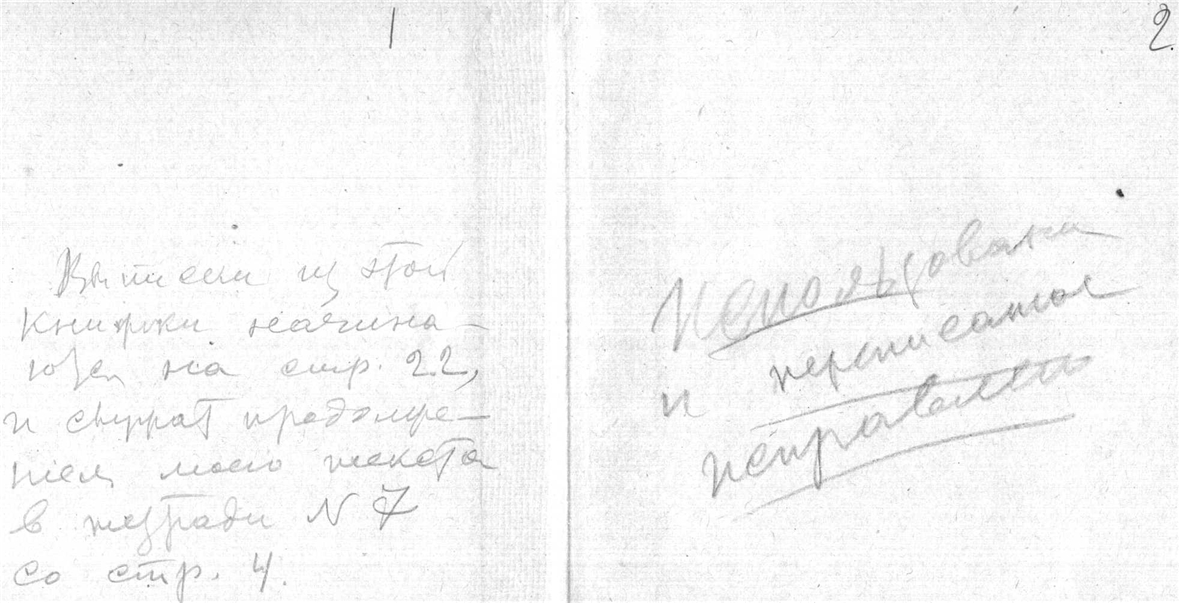 1
Выписки из этой
книжки начина-
ются на стр. 22,
и служат продолже-
нием моего текста
в тетради N 7
со стр. 4.
2.
Использована
и переписана
исправлено